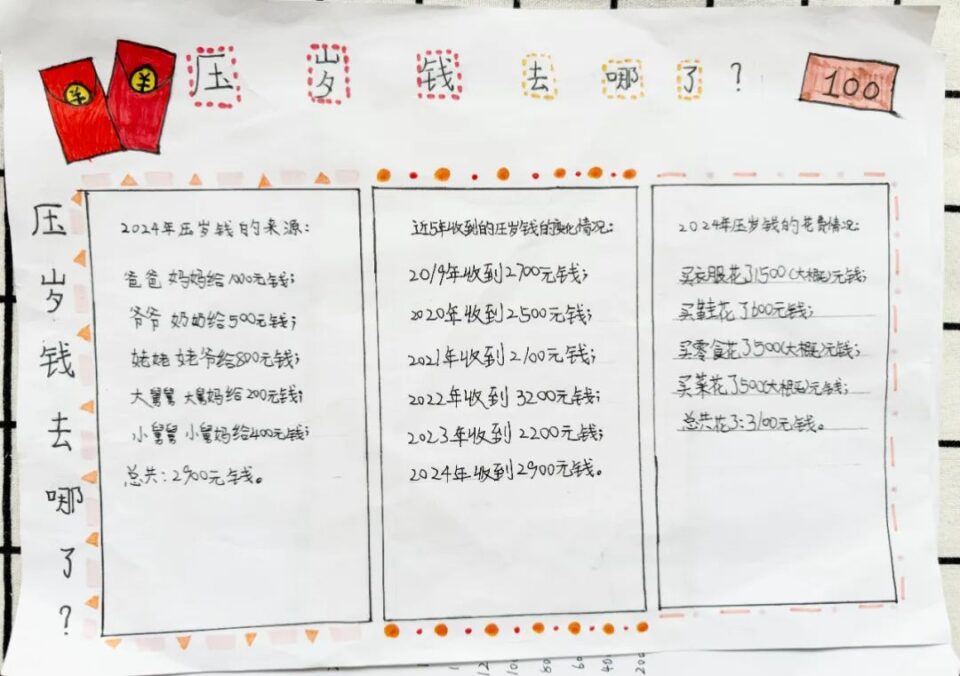 压岁钱去哪了?
¥
¥
100
压岁钱去哪了?
2024年压岁钱的来源:
爸爸 妈妈给1000元钱;
爷爷 奶奶给500元钱;
姥姥 姥爷给800元钱;
大舅舅 大舅妈给200元钱;
小舅舅 小舅妈给400元钱;
总共:2900元钱。
近5年收到的压岁钱的变化情况:
2019年收到2700元钱;
2020年收到2500元钱;
2021年收到2100元钱;
2022年收到3200元钱;
2023年收到2200元钱;
2024年收到2900元钱。
2024年压岁钱的花费情况:
买衣服花了1500(大概)元钱;
买鞋花了600元钱;
买零食花了500(大概)元钱;
买菜花了500(大概)元钱;
总共花了:3100元钱。